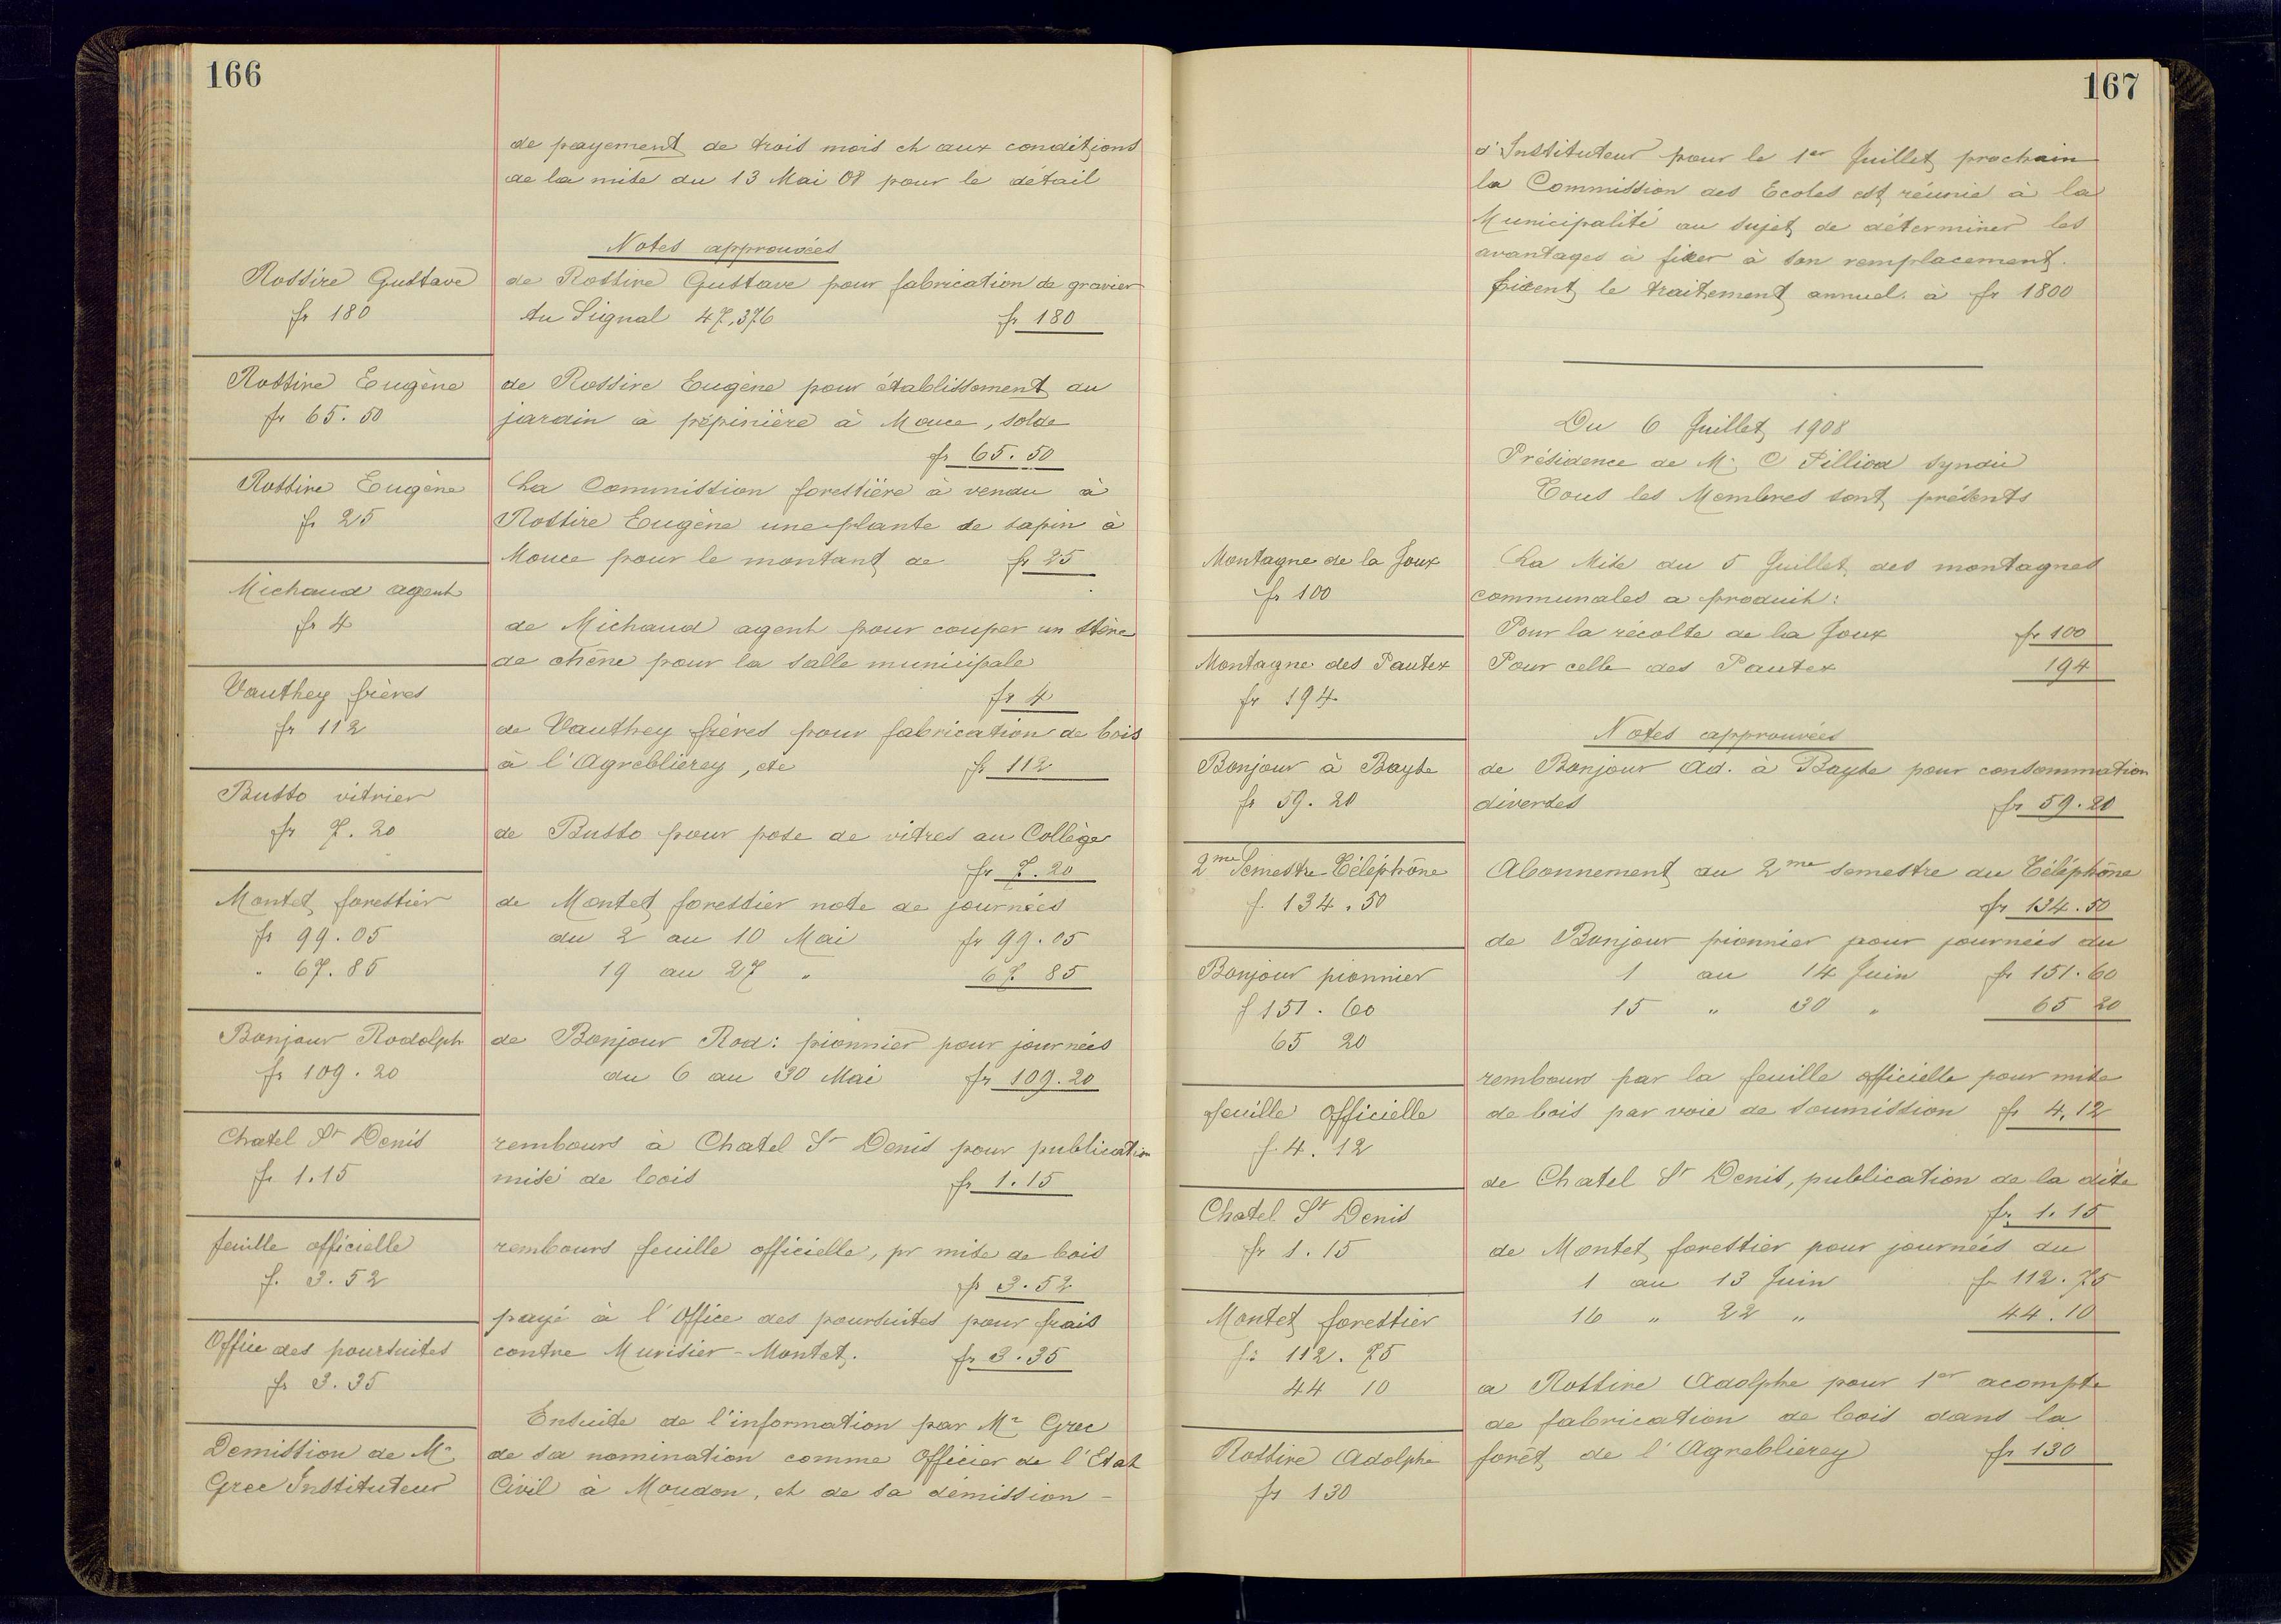 166
de payement de trois mois et aux conditions
de la mise du 13 Mai 08 pour le détail
Notes approuvées
Rossire Gustave
fr 180
de Rossire Gustave pour fabrication de gravier
Au Signal 47,376 fr 180
Rossire Eugène
fr 65.50
de Rossire Eugène pour établissement du
jardin à pépinière à Mouce, solde
fr 65.50
Rossire Eugène
fr 25
La Commission forestière à vendu à
Rossire Eugène une plante de sapin à
Mouce pour le montant de fr 25
Michaud agent
fr 4
de Michaud agent pour couper un stère
de chêne pour la salle municipale
fr 4
Vauthey frères
fr 112
de Vauthey frères pour fabrication de bois
à l'Agreblierey, etc fr 112
Busso vitrier
fr 7.20
de Busso pour pose de vitres au Collège
fr 7.20
Montet forestier
fr 99.05
" 67.85
de Montet forestier note de journées
du 2 au 10 Mai fr 99.05
19 au 27 " 67 85
Bonjour Rodolph
fr 109.20
de Bonjour Rod: pionnier pour journées
du 6 au 30 Mai fr 109.20
Chatel St Denis
fr 1.15
rembours à Chatel St Denis pour publication
mise de bois fr 1.15
feuille officielle
f. 3.52
rembours feuille officielle, pr mise de bois
fr 3.52
Office des poursuites
fr 3.35
payé à l'Office des poursuites pour frais
contre Murisier-Montet. fr 3.35
Demission de Mr
Grec Instituteur
Ensuite de l'information par Mr Grec
de sa nomination comme Officier de l'Etat
Civil à Moudon, et de sa démission -
167
d'Instituteur pour le 1er Juillet prochain
la Commission des Ecoles est réunie à la
Municipalité au sujet de déterminer les
avantages à fixer à son remplacement.
fixent le traitement annuel à fr 1800
Du 6 Juillet 1908
Présidence de M. C Pilliod syndic
Tous les Membres sont présents
Montagne de la Joux
fr 100
La Mise du 5 Juillet des montagnes
communales a produit:
Pour la récolte de la Joux fr 100
Montagne des Pautex
fr 194
Pour celle des Pautex 194
Notes approuvées
Bonjour à Bayse
fr 59.20
de Bonjour Ad. à Bayse pour consommation
diverses fr 59.20
2me Semestre Téléphone
f. 134.50
Abonnement du 2me semestre du Téléphône
fr 134.50
Bonjour pionnier
f 151.60
65 20
de Bonjour pionnier pour journées du
1 au 14 Juin fr 151.60
15 " 30 " 65 20
feuille Officielle
f. 4.12
rembours par la feuille officielle pour mise
de bois par voie de soumission fr 4.12
Chatel St Denis
fr 1.15
de Chatel St Denis, publication de la dite
fr 1.15
Montet forestier
fr 112.75
44 10
de Montet forestier pour journées du
1 au 13 Juin fr 112.75
16 " 22 " 44.10
Rossire Adolphe
fr 130
a Rossire Adolphe pour 1er acompte
de fabrication de bois dans la
forêt de l'Agreblierey fr 130